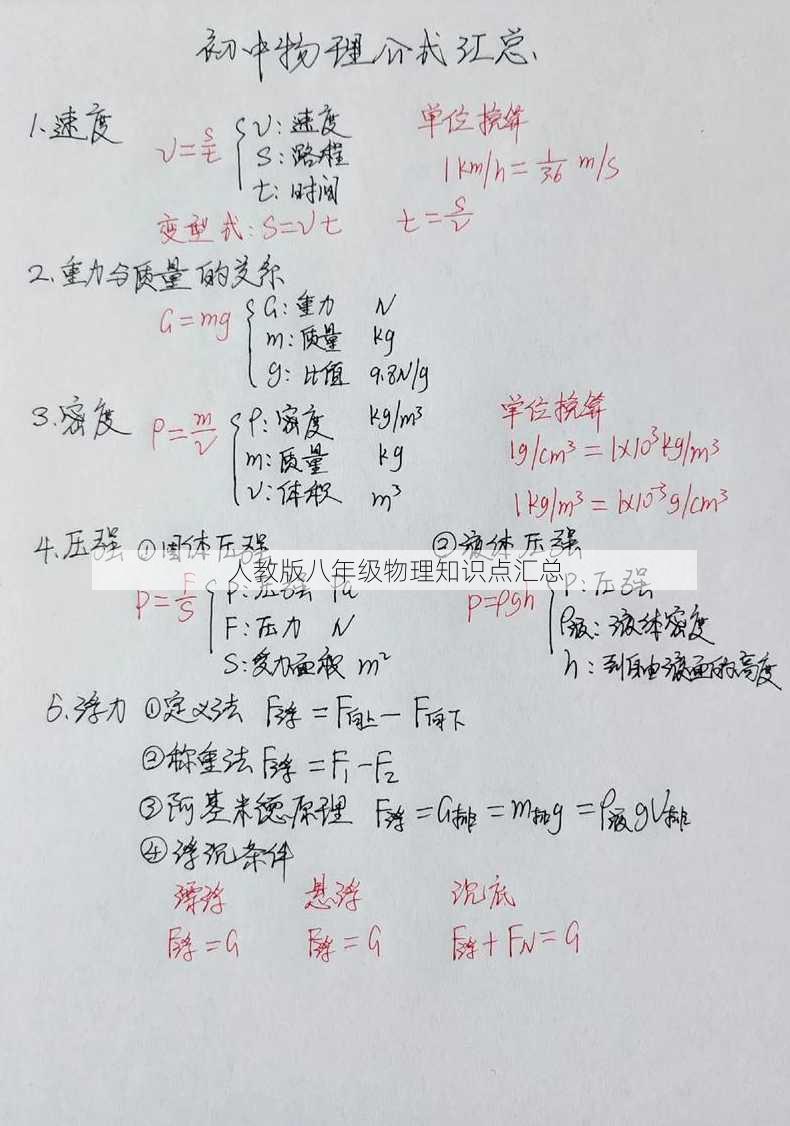 初中物理公式汇总
1.速度 v=s/t { v: 速度 单位换算
s: 路程 1km/h=1/3.6 m/s
t: 时间
变型式: s=vt t=s/v
2.重力与质量的关系
G=mg { G: 重力 N
m: 质量 kg
g: 比值 9.8N/g
3.密度 ρ=m/v { ρ: 密度 kg/m³ 单位换算
m: 质量 kg 1g/cm³=1×10³kg/m³
v: 体积 m³ 1kg/m³=1×10⁻³g/cm³
4.压强 ①固体压强 ②液体压强
人教版八年级物理知识点汇总
p=F/S { P: 压强 Pa p=ρgh { P: 压强
F: 压力 N ρ液: 液体密度
S: 受力面积 m² h: 到自由液面的高度
5.浮力 ①定义法 F浮=F向上-F向下
②称重法 F浮=F₁-F₂
③阿基米德原理 F浮=G排=m排g=ρ液gV排
④浮沉条件
漂浮 悬浮 沉底
F浮=G F浮=G F浮+FN=G